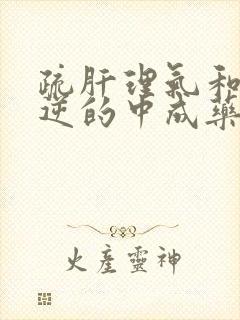 疏肝理气和
逆的中成药
火產靈神